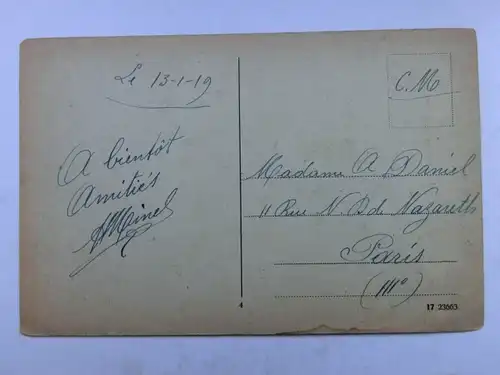 Le 13-1-19
A bientôt
Amitiés
HMinel
C. M
Madame A Daniel
11 Rue N D de Nazareth
Paris
(IIIe)
4
17 23603